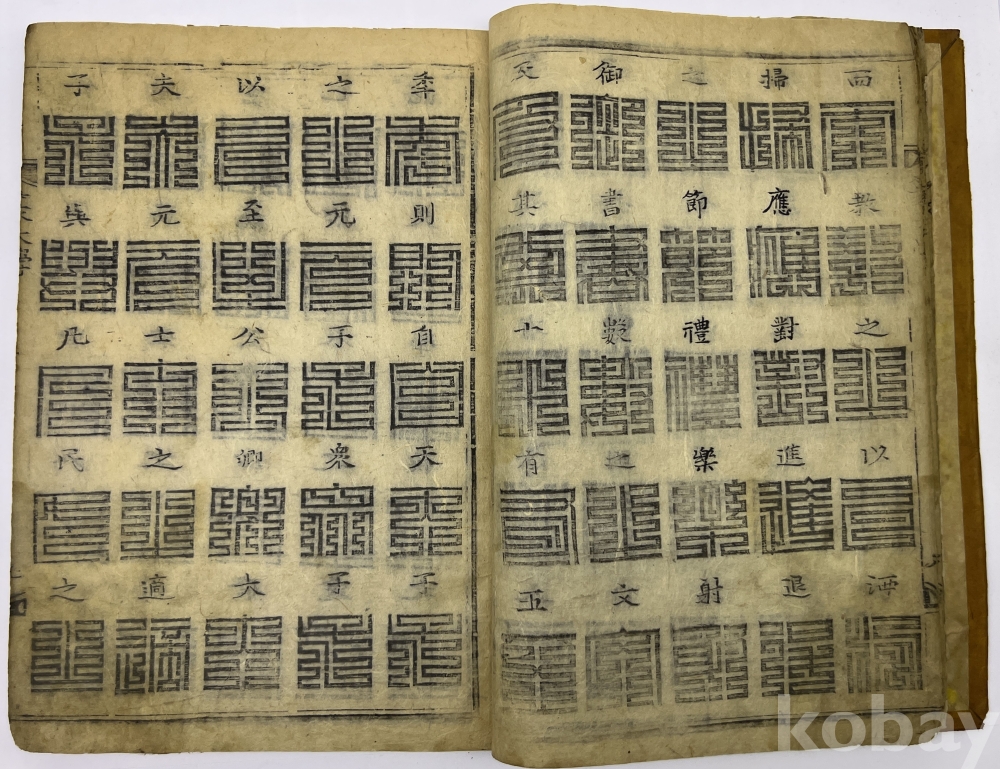 而教之以洒
掃應對進退
之節禮樂射
御書數之文
及其十有五
年則自天子
之元子衆子
以至公卿大
夫元士之適
子與凡民之
kobay